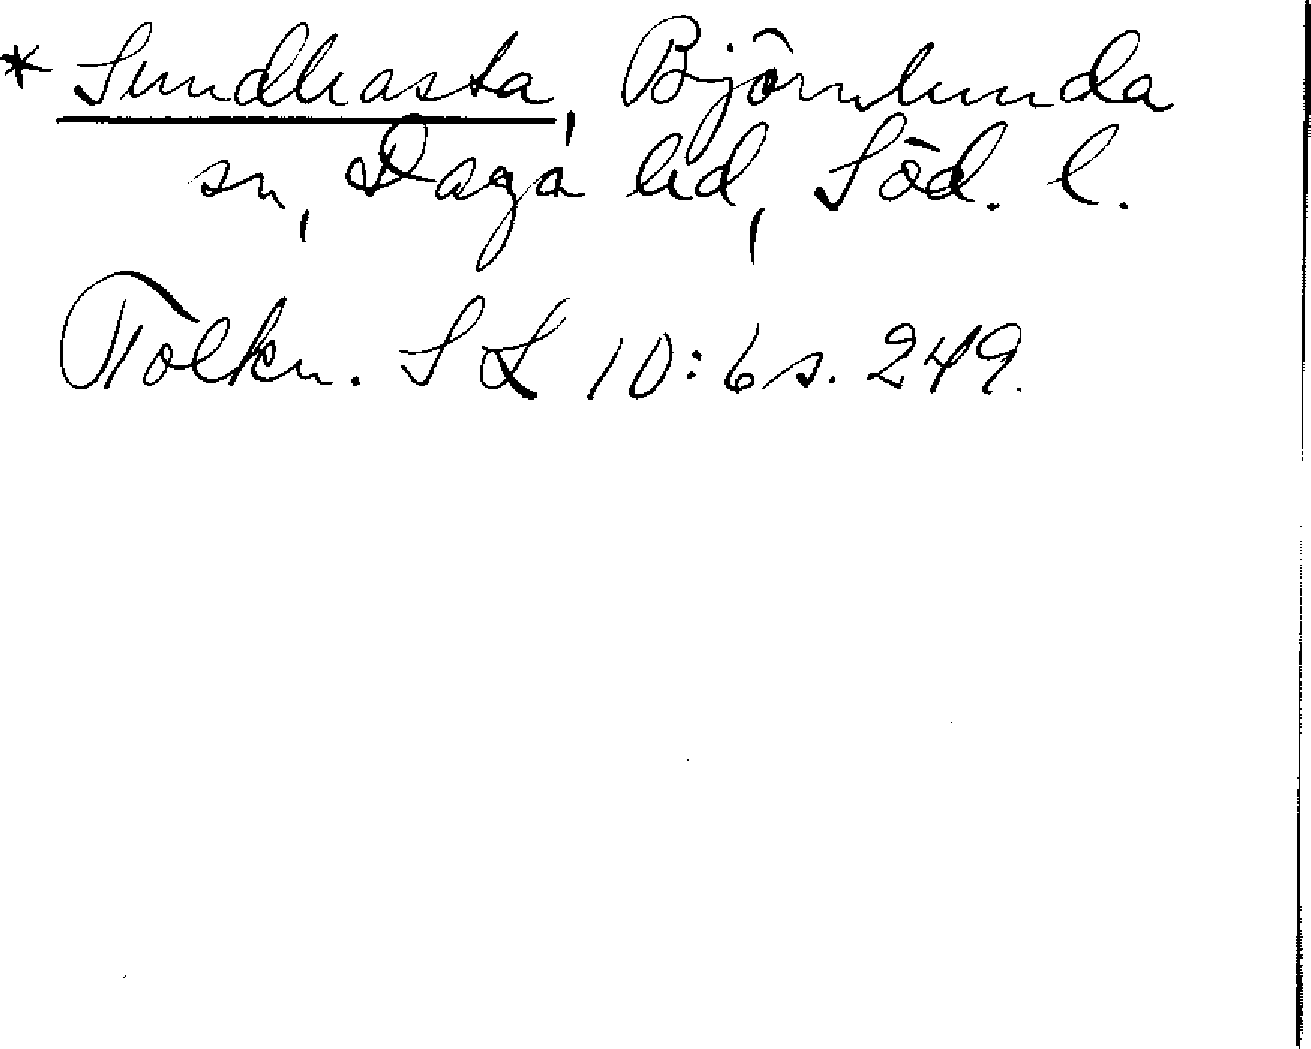 * Sundhasta, Björnlunda
sn, Daga hd, Söd. l.
Tolkn. SL 10:6 s. 249.